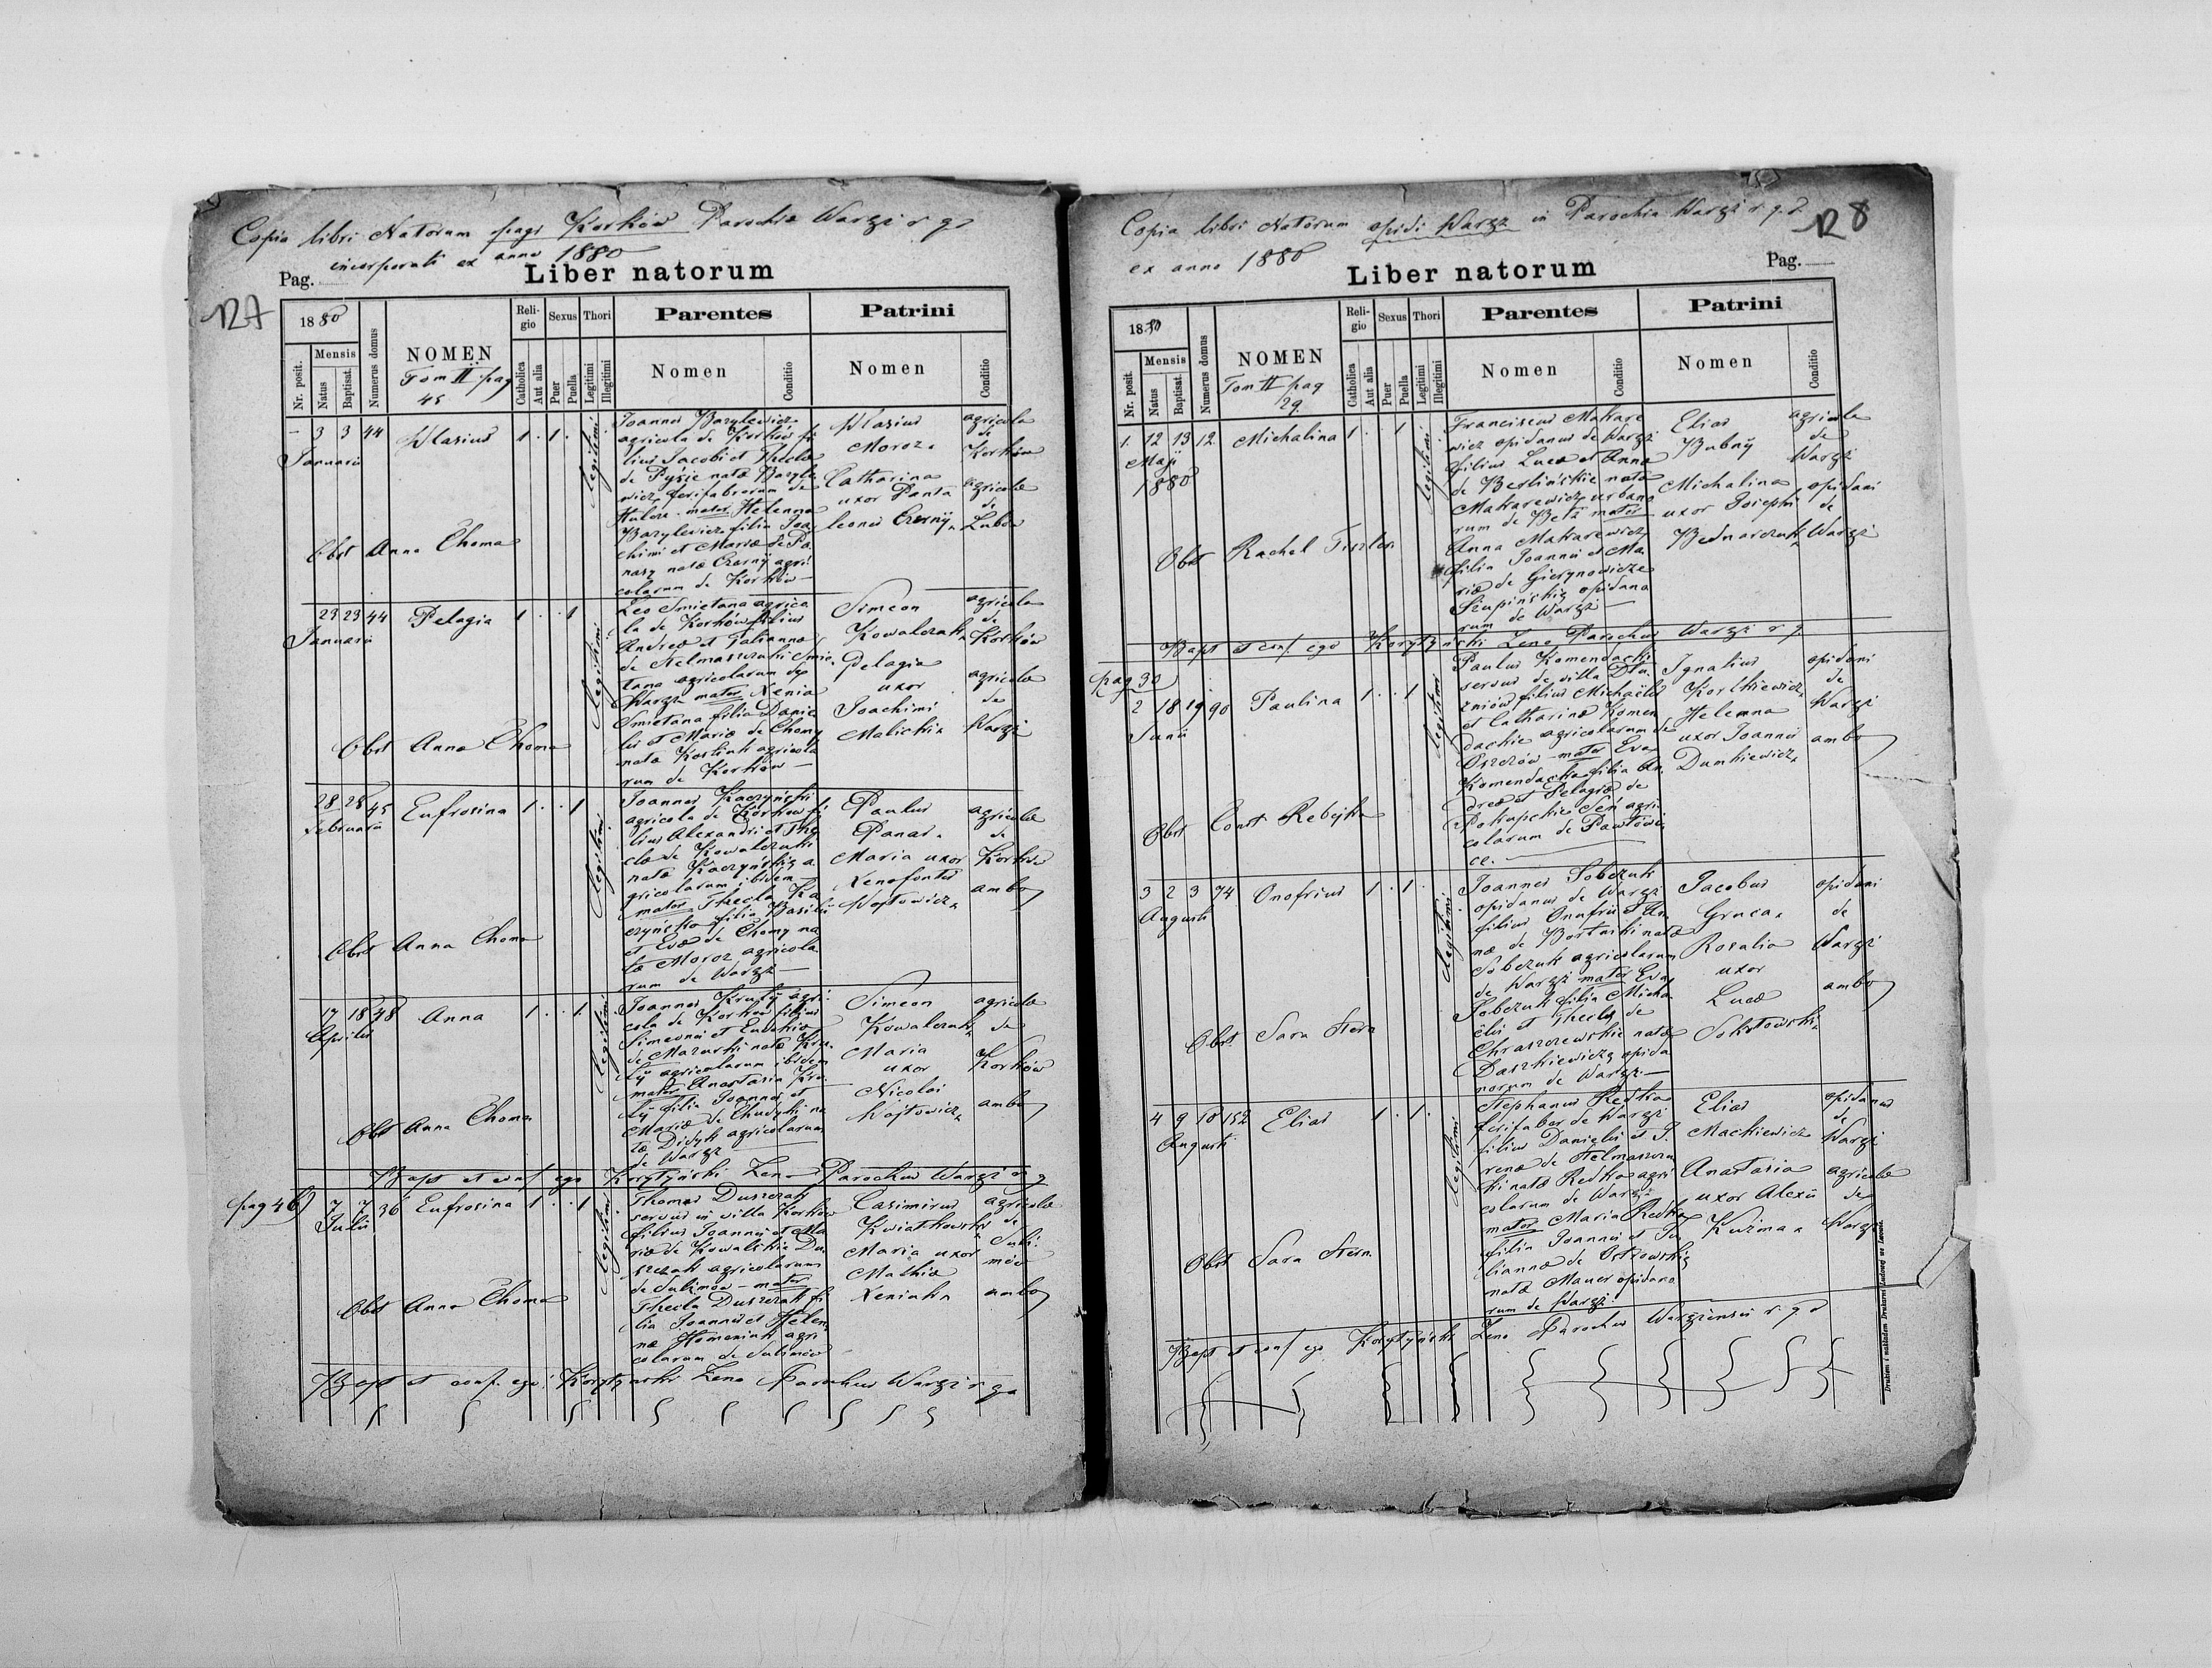 Copia libri Natorum pagi Korków Parochiæ Waręż r. g.
incorporati ex anno 1880
Pag.
Liber natorum
127
1880
Mensis
Nr. posit.
Natus
Baptisat.
Numerus domus
NOMEN
Tom II pag
45
Religio
Catholica
Aut alia
Sexus
Puer
Puella
Thori
Legitimi
Illegitimi
Parentes
Nomen
Conditio
Patrini
Nomen
Conditio
3 3 44 Wlasius 1 . 1 .
Januarii
legitimi
Joannes Bazylewicz
agricola de Korków fi
lius Jacobi et Thecla
de nata Bazyle
wicz ferifabrorum de
mater Helenna
Bazylewicz filia Joa
chimi et Mariæ de Pa
nasy nata Czerny agri
colarum de Korków
Wlasius
Moroz
Catharina
uxor Panta
leonis Czerny
agricola
de
Korków
agricola
de
Obst Anna Choma
23 23 44 Pelagia 1 . . 1
Januarii
legitimi
Leo Smietana agrico
la de Korków filius
Andreæ et Julianna
de Helmaszczuki Smie
tana agricolarum de
Waręż mater Xenia
Smietana filia Danie
lis et Mariæ de Chomy
nata agricola
rum de Korków
Simeon
Kowalczuk
Pelagia
uxor
Joachimi
Malicki
agricola
de
Korków
agricola
de
Waręż
Obst Anna Choma
28 28 45 Eufrosina 1 . . 1
Februarii
legitimi
Joannes Kaczyński
agricola de Korków fi
lius Alexandri et The
cla de Kowalczuki
nata Kaczyński a
gricolarum ibidem
mater Thecla Ka
czyńska filia Basilii
et Eva de Chomy na
ta Moroz agricola
rum de Waręż
Paulus
Panas
Maria uxor
Xenofontis
Wojtowicz
agricola
de
Korków
ambo
Obst Anna Choma
17 18 48 Anna 1 . . 1
Aprilis
legitimi
Joannes Krutÿ agri
cola de Korków filius
Simeonis et Eudokia
de Mazurki nata Kru
tÿ agricolarum ibidem
mater Anastasia Kru
tÿ filia Joannis et
Mariæ de Chudyki na
ta Didyk agricolarum
de Waręż
Simeon
Kowalczuk
Maria
uxor
Nicolai
Wojtowicz
agricola
de
Korków
ambo
Obst Anna Choma
Bapt et conf. ego Korytyński Zeno Parochus Waręż r g
pag 46
7 7 36 Eufrosina 1 . . 1
Julii
legitimi
Thomas Duszczak
servus in villa Korków
filius Joannis et Ma
riæ de Kowalskie Du
szczak agricolarum
de Sulimów mater
Thecla Duszczak fi
lia Joannis et Helen
næ Homeniuk agri
colarum de Sulimów
Casimirus
Kwiatkowski
Maria uxor
Mathiæ
Xeniuk
agricola
de
Suli
mów
ambo
Obst Anna Choma
Bapt et conf. ego Korytyński Zeno Parochus Waręż r g
Copia libri Natorum opidi Waręż in Parochia Waręż r. g.
ex anno 1880
128
Liber natorum
Pag.
1880
Mensis
Nr. posit.
Natus
Baptisat.
Numerus domus
NOMEN
Tom II pag
29.
Religio
Catholica
Aut alia
Sexus
Puer
Puella
Thori
Legitimi
Illegitimi
Parentes
Nomen
Conditio
Patrini
Nomen
Conditio
1. 12 13 12. Michalina 1 . 1
Maji
1880
legitimi
Franciscus Makare
wicz opidanus de Waręż
filius Lucæ et Anna
de Berlińskie nata
Makarewicz urbano
rum de Bełz mater
Anna Makarewicz
filia Joannis et Ma
riæ de Gierynowicze
Szupińskie opidano
rum de Waręż
Elias
Bubnÿ
Michalina
uxor Josephi
Bednarczuk
agricola
de
Waręż
opidani
de
Waręż
Obst Rachel
Bapt et conf. ego Korytyński Zeno Parochus Waręż r g.
pag 30
2 18 19 90 Paulina 1 . . 1
Junii
legitimi
Paulus Komendacki
servus de villa Dłu
żniów filius Michaëlis
et Catharina Komen
dackie agricolarum de
Oszczów mater Eva
Komendacka filia An
dreæ et Pelagiæ de
Potapskie Seń agri
colarum de Pawłowi
ce.
Ignatius
Kostkiewicz
Helenna
uxor Joannis
Dumkiewicz
opidani
de
Waręż
ambo
Obst Const Rebejko
3 2 3 74 Onofrius 1 . 1 .
Augusti
legitimi
Joannes Sobczuk
opidanus de Waręż
filius Onufrii et An
næ de Bortniki nata
Sobczuk agricolarum
de Waręż mater Eva
Sobczuk filia Micha
ëlis et Thecla de
Chraszczewskie nata
Daszkiewicz opida
norum de Waręż
Jacobus
Gruca
Rosalia
uxor
Lucæ
Sokołowski
opidani
de
Waręż
ambo
Obst. Sara Stern
4 9 10 152 Elias 1 . 1 .
Augusti
legitimi
Stephanus Redka
ferifaber de Waręż
filius Danielis et I
rena de Helmaszczu
ki nata Redka agri
colarum de Waręż
mater Maria Redka
filia Joannis et Ju
lianna de Ostrowskie
nata Mauer opidano
rum de Waręż
Elias
Mackiewicz
Anastasia
uxor Alexii
Kuźma
opidanus
de
Waręż
agricola
de
Waręż
Obst Sara Stern.
Bapt et conf. ego Korytyński Zeno Parochus Warężensis r g
Drukiem i nakładem Drukarni Ludowej we Lwowie.